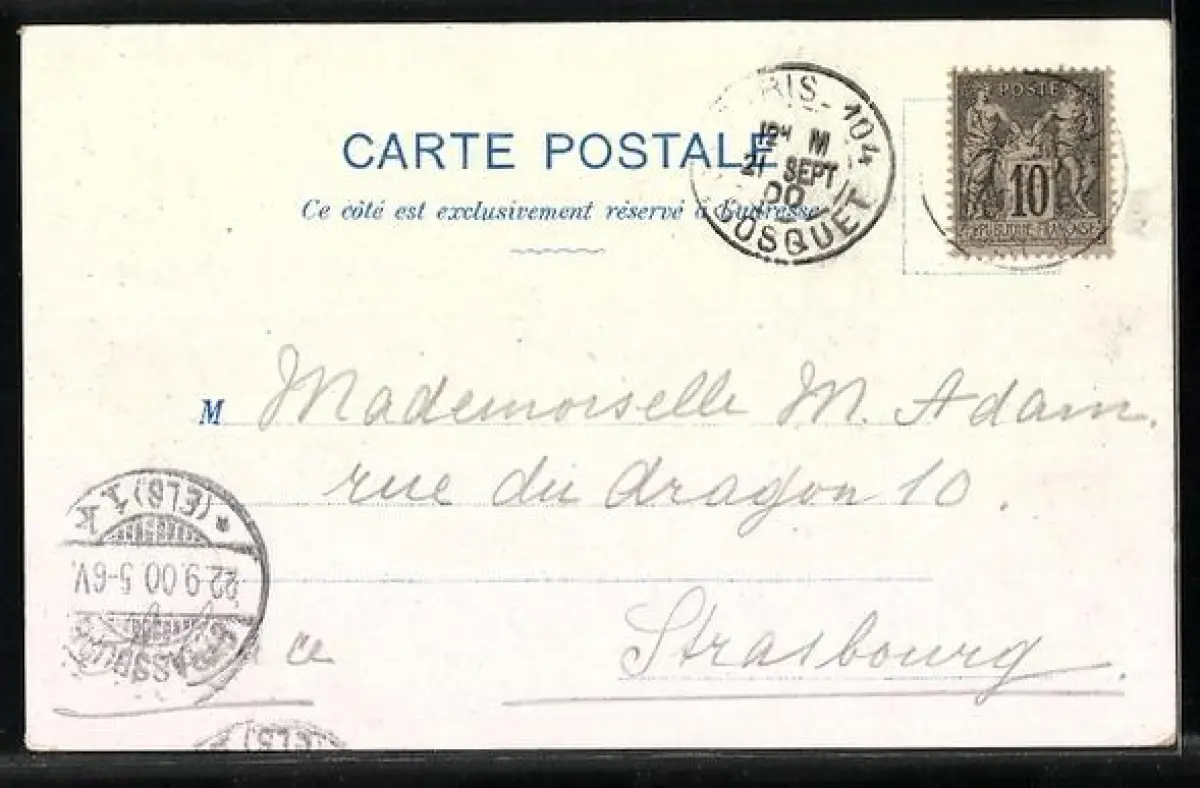 CARTE POSTALE
Ce côté est exclusivement réservé à l'adresse
PARIS - 104
12H M
21 SEPT
00
BOSQUET
POSTE
10
REPUBLIQUE FRANÇAISE
M Mademoiselle M. Adam.
rue du dragon 10.
Strasbourg.
ce
STRASSBURG
22.9.00.5-6V.
* (ELS) 1 K
(ELS)